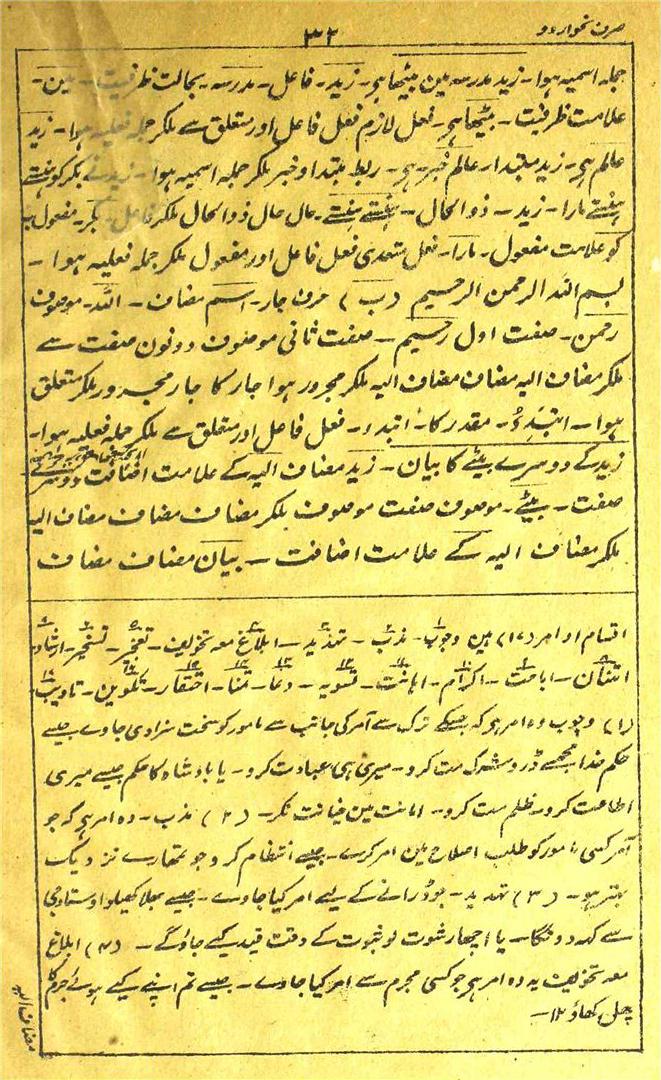 صرف نحو اردو
۳۲
جملہ اسمیہ ہوا۔ زید مدرسہ مین بیٹھا ہی۔ زید۔ فاعل۔ مدرسہ۔ بحالت ظرفیت۔ مین۔
علامت ظرفیت۔ بیٹھا ہی۔ فعل لازم فعل فاعل اور متعلق سے ملکر جملہ فعلیہ ہوا۔ زید
عالم ہی۔ زید مبتدا۔ عالم خبر۔ ہی۔ ربط مبتدا و خبر ملکر جملہ اسمیہ ہوا۔ زید نے بکر کو ہنستے
ہنستے مارا۔ زید۔ ذوالحال۔ ہنستے ہنستے۔ حال حال ذوالحال ملکر فاعل۔ بکر۔ مفعول بہ
کو علامت مفعول۔ مارا۔ فعل متعدی فعل فاعل اور مفعول ملکر جملہ فعلیہ ہوا۔
بسم اللہ الرحمن الرحیم (ب) حرف جار۔ اسم مضاف۔ اللہ۔ موصوف
رحمن۔ صفت اول رحیم۔ صفت ثانی موصوف دونون صفت سے
ملکر مضاف الیہ مضاف مضاف الیہ ملکر مجرور ہوا جار کا جار مجرور ملکر متعلق
ہوا۔ ابتدءُ۔ مقدر کا۔ ابتدء۔ فعل فاعل اور متعلق سے ملکر جملہ فعلیہ ہوا۔
زید کے دوسرے بیٹے کا بیان۔ زید مضاف الیہ کے علامت اضافت دوسرے
صفت۔ بیٹے۔ موصوف صفت موصوف ملکر مضاف مضاف مضاف الیہ
ملکر مضاف الیہ کے علامت اضافت۔ بیان مضاف مضاف
اقسام اوامر (۱۷) ہین وجوب۔ ندب۔ تہدید۔ ابلاغ معہ تخویف۔ تعجیز۔ تسخیر۔ ارشاد
امتنان۔ اباحت۔ اکرام۔ اہانت۔ تسویہ۔ دعا۔ تمنا۔ احتقار۔ تکوین۔ تادیب
(۱) وجوب وہ امر ہی کہ جسکے ترک سے آمر کی جانب سے مامور کو سخت سزا دی جاوے جیسے
حکم خدا مجھسے ڈرو شرک مت کرو۔ میری ہی عبادت کرو۔ یا بادشاہ کا حکم جیسے میری
اطاعت کرو۔ ظلم مت کرو۔ امانت مین خیانت نکر۔ (۲) ندب۔ وہ امر ہی کہ جو
آمر کسی مامور کو طلب اصلاح مین امر کرے۔ جیسے انتظام کرو جو تمہارے نزدیک
بہتر ہو۔ (۳) تہدید۔ جو ڈرانے کے لیے امر کیا جاوے۔ جیسے بھلا کھیلو اوستاد جی
سے کہدونگا۔ یا اچھا رشوت لو ثبوت کے وقت قید کیے جاؤگے۔ (۴) ابلاغ
معہ تخویف یہ وہ امر ہی جو کسی مجرم سے امر کیا جاوے۔ جیسے تم اپنے کیے ہوئے جرم کا
پھل کھاؤ ۱۲۔
مضاف الیہ